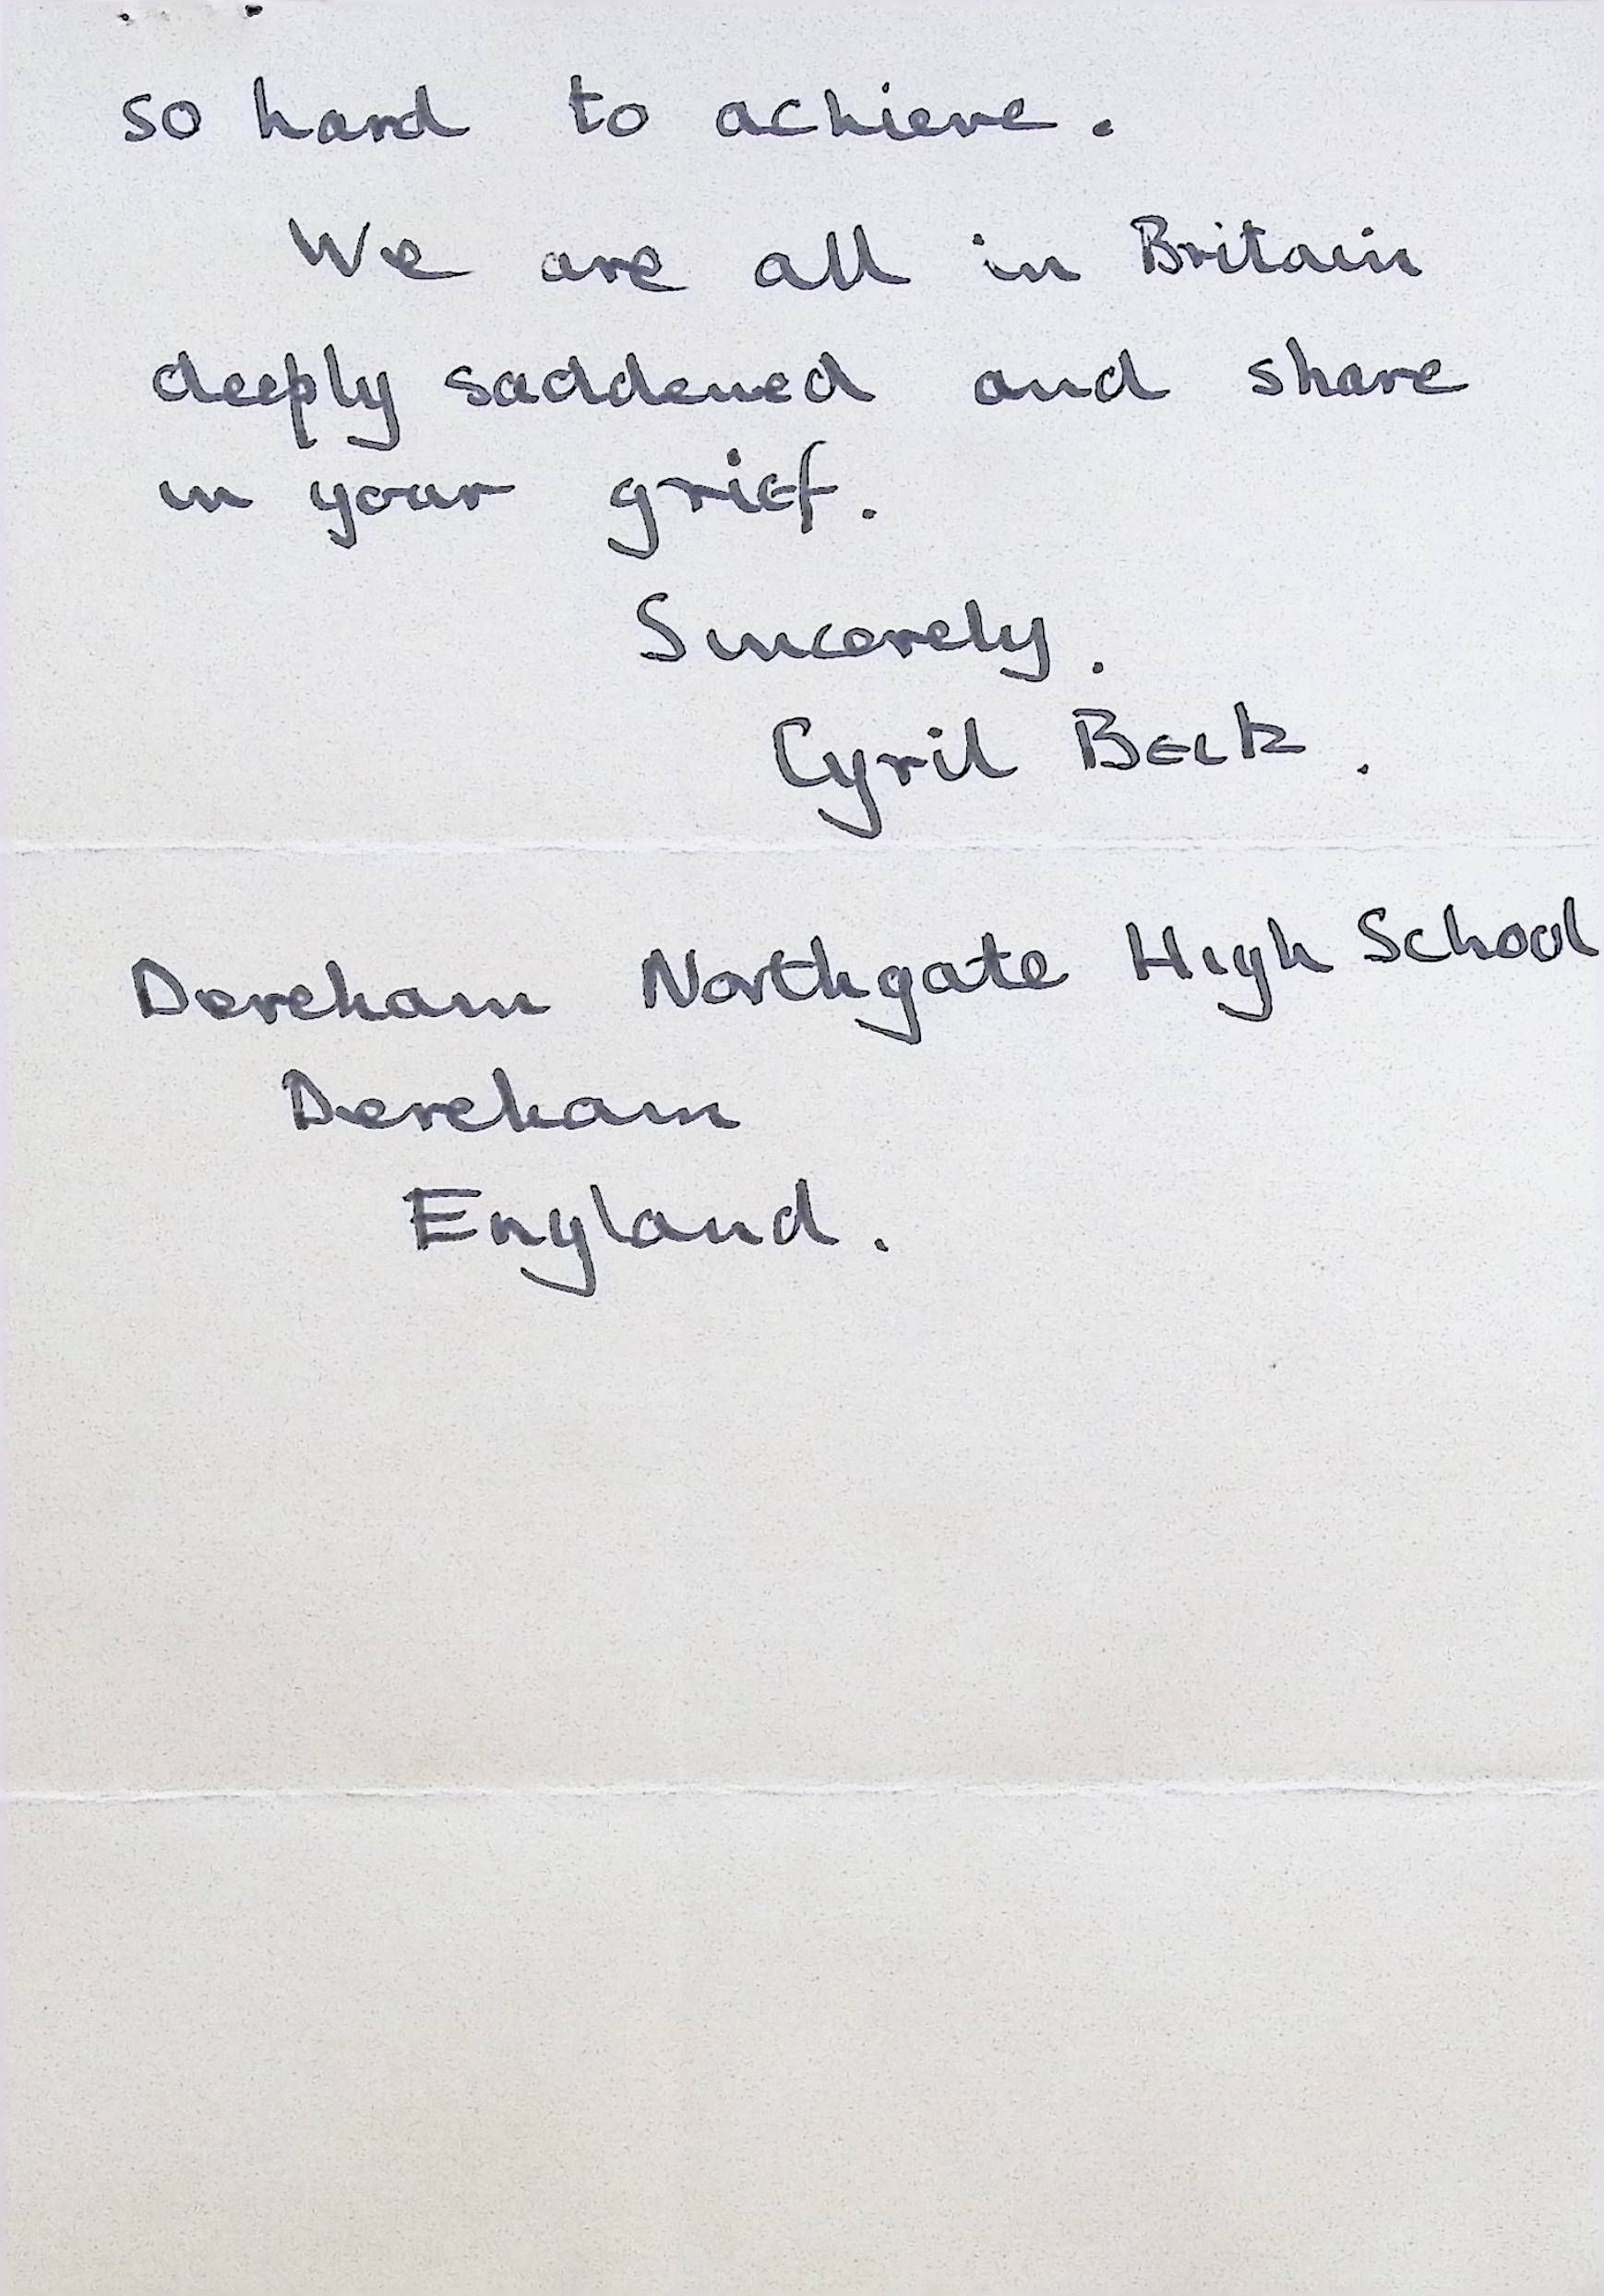 so hard to achieve.
We are all in Britain
deeply saddened and share
in your grief.
Sincerely.
Cyril Beck.
Dereham Northgate High School
Dereham
England.